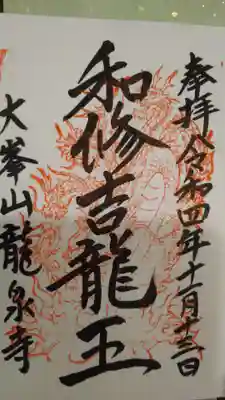 奉拝令和四年十一月十三日
和修吉龍王
大峯山龍泉寺